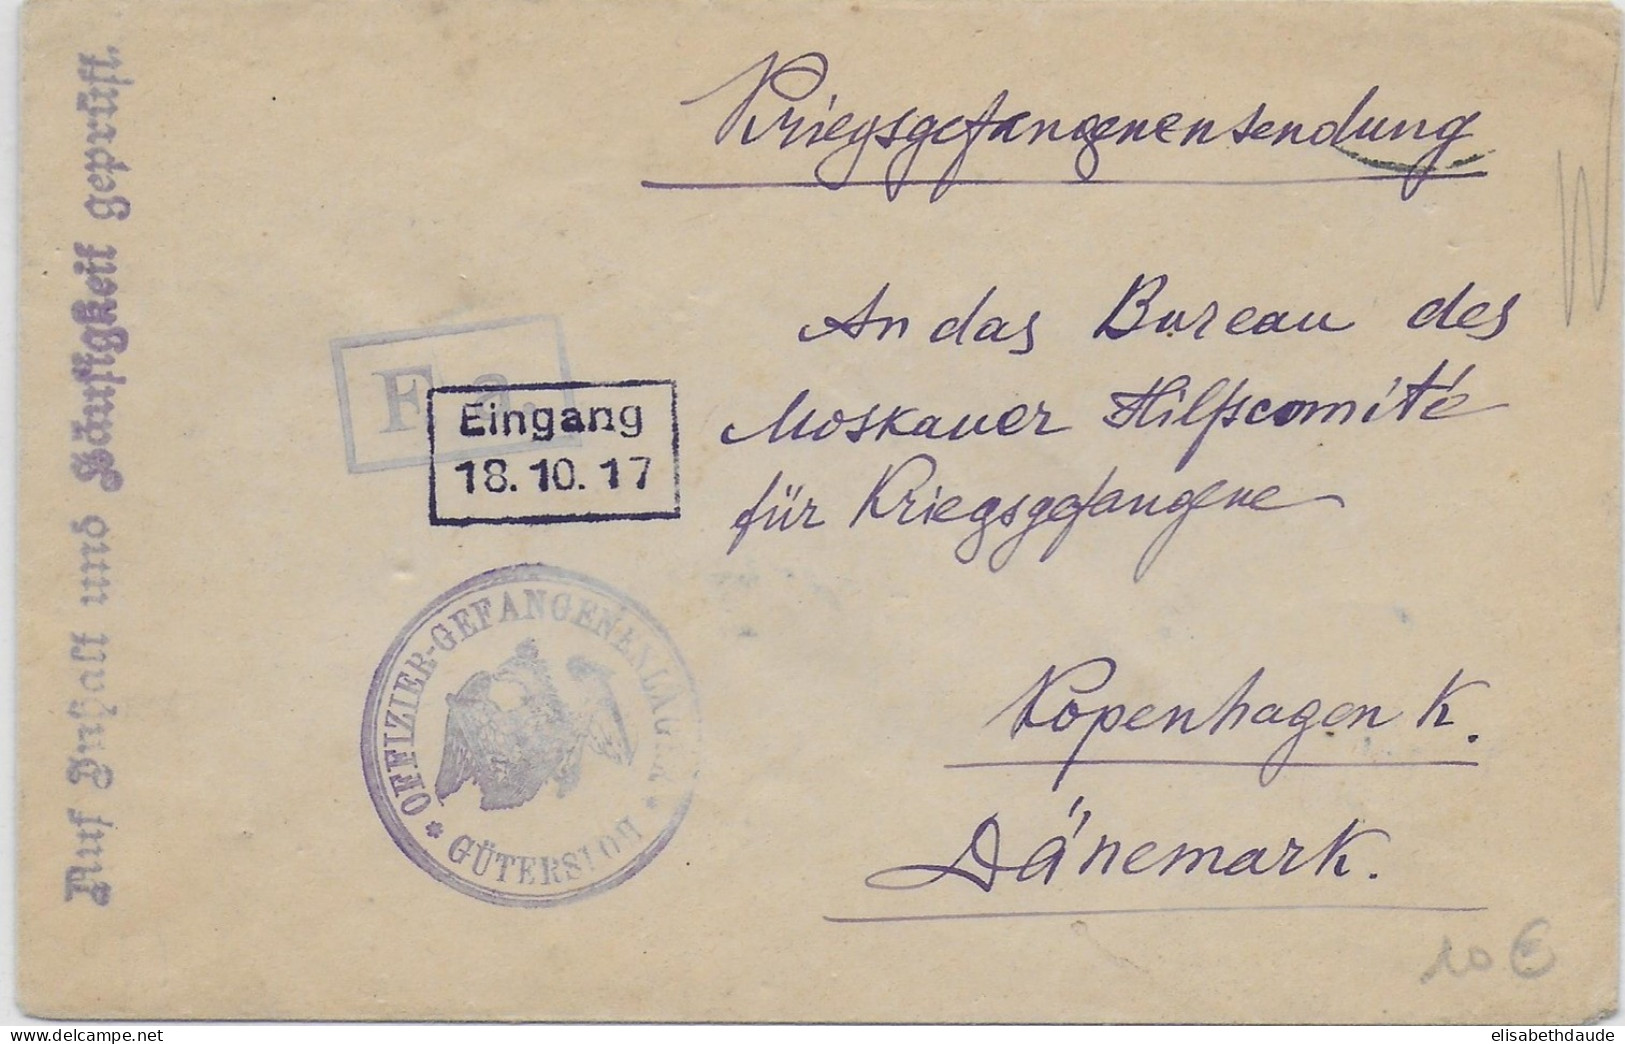 Kriegsgefangenensendung
An das Bureau des
Moskauer Hilfscomité
für Kriegsgefangene
Kopenhagen K.
Dänemark.
Auf Inhalt und Häufigkeit geprüft.
F. a.
Eingang
18.10.17
OFFIZIER-GEFANGENENLAGER
* GÜTERSLOH *
10 €
www.delcampe.net
elisabethdaude